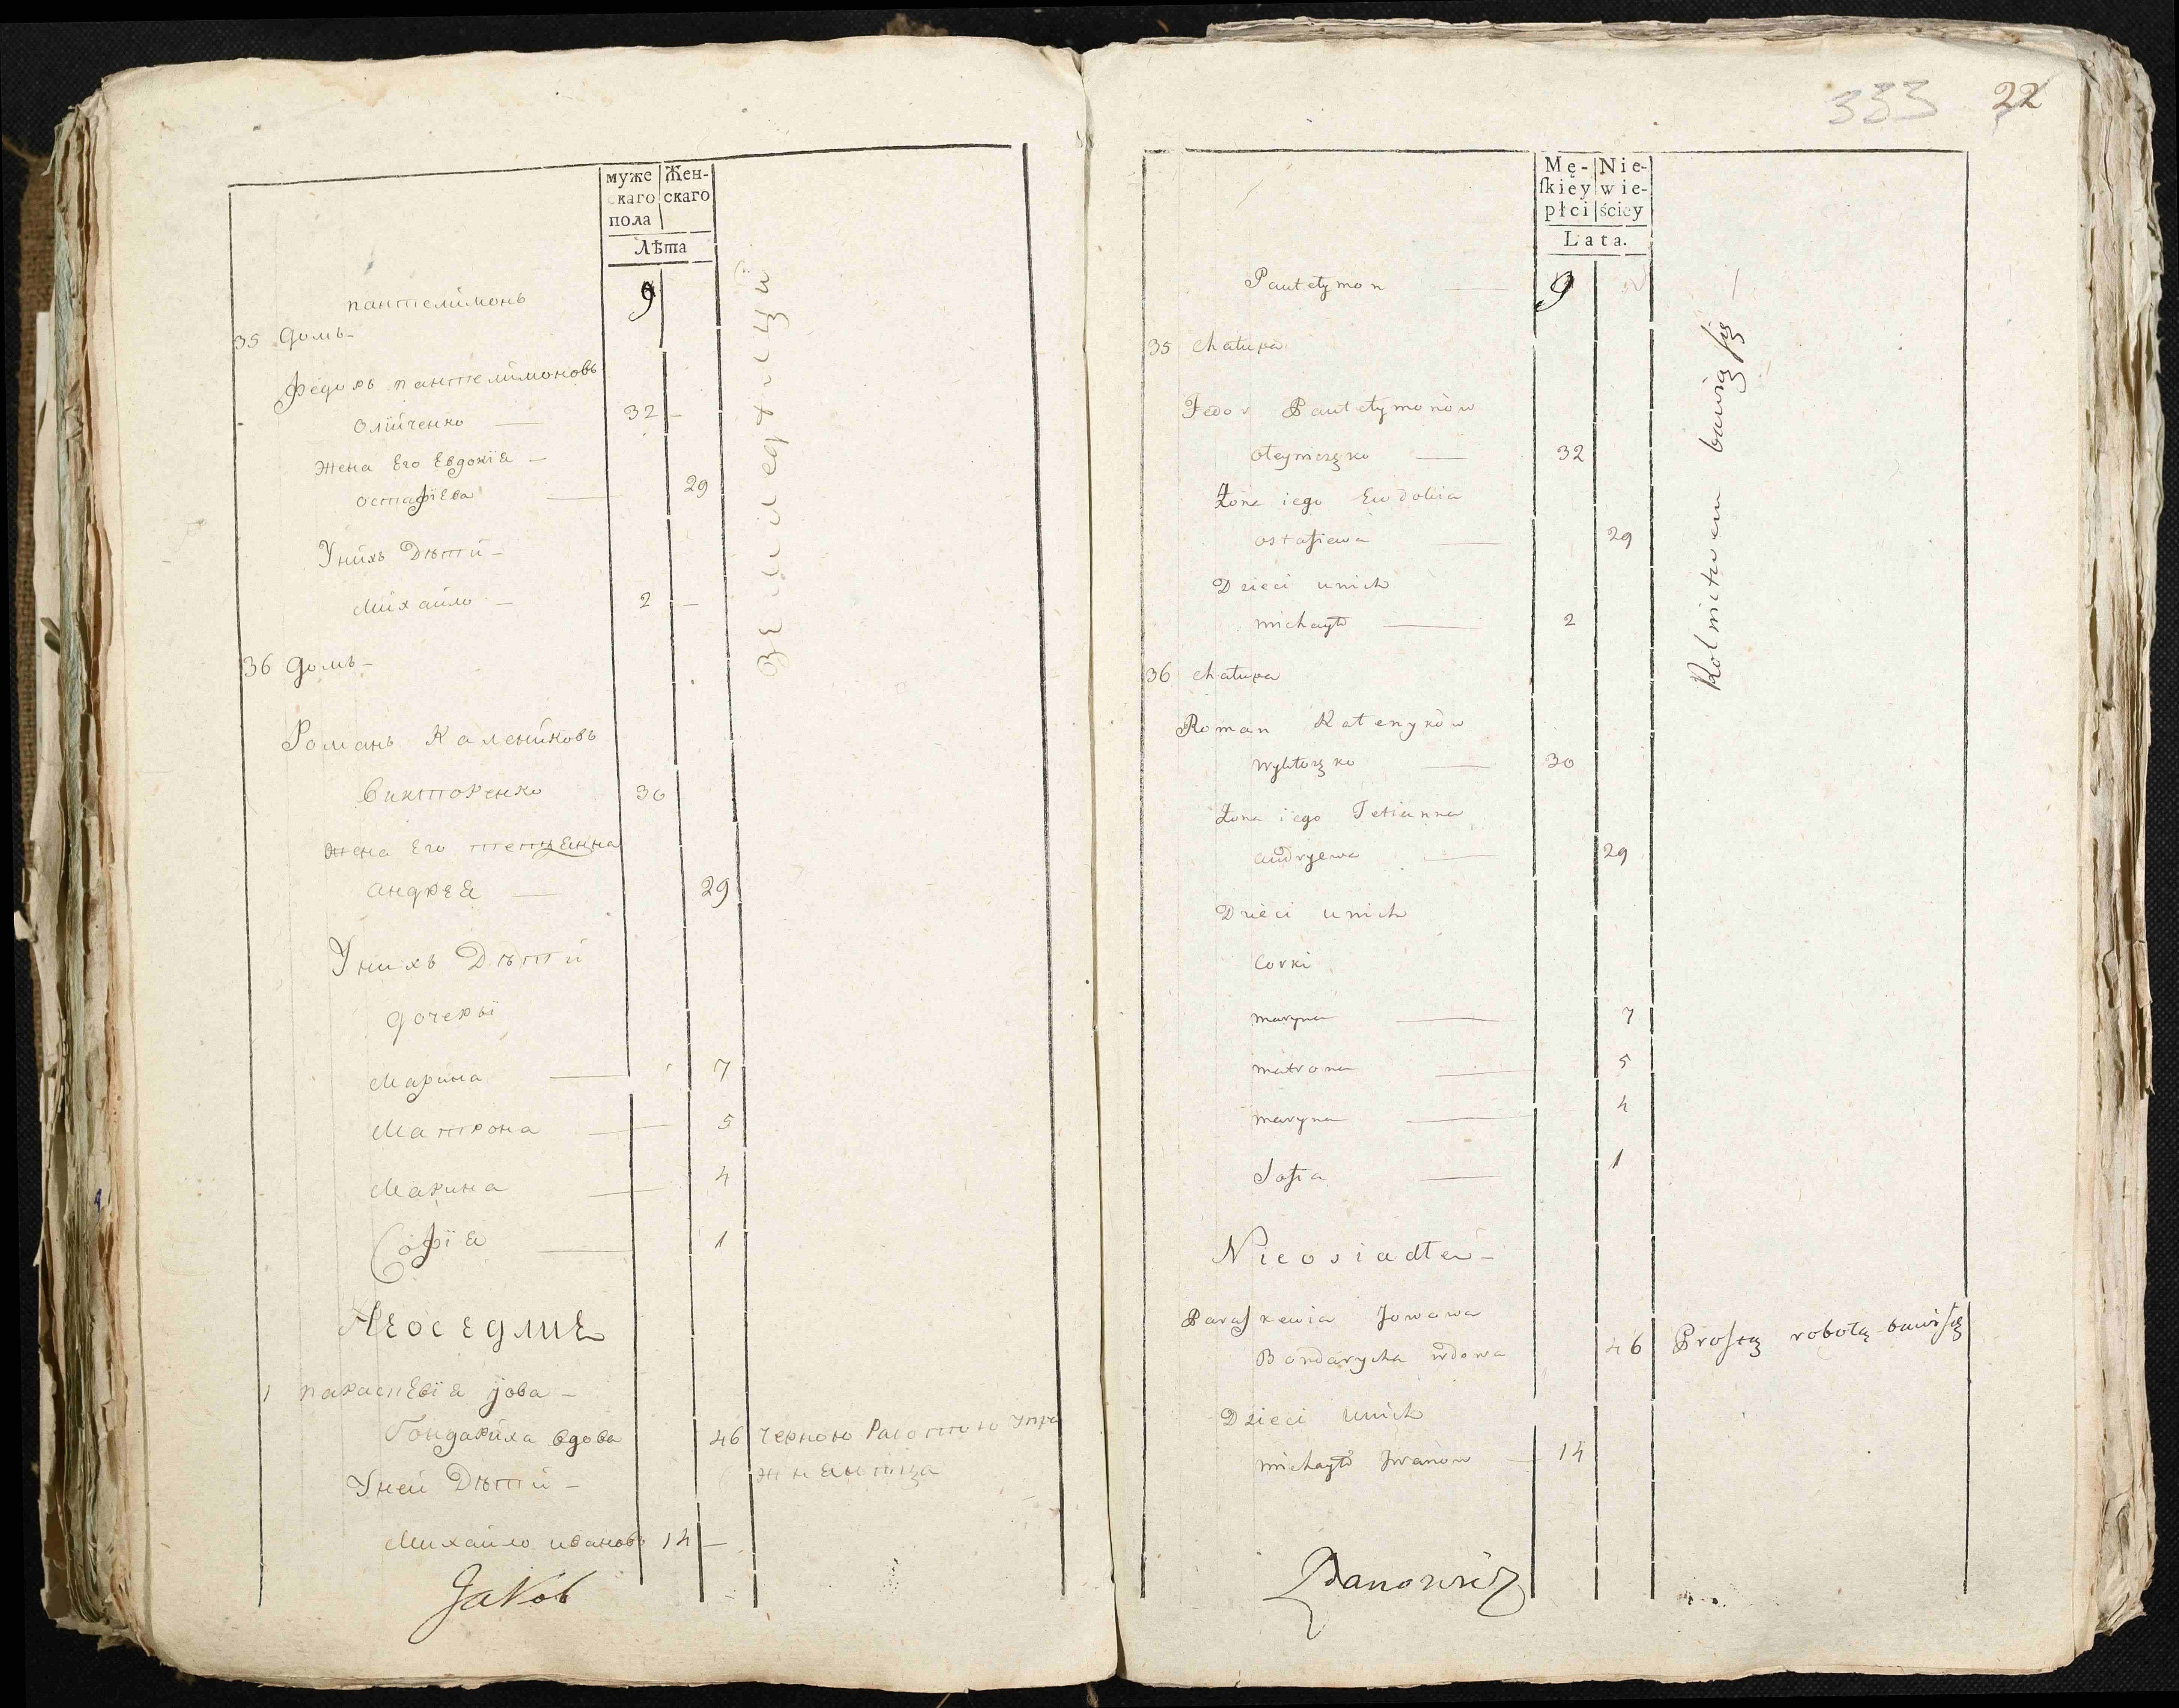 муже
скаго
пола
Жен-
скаго
Лѣта
пантелймонъ 9
35 Домъ-
Федоръ пантелймоновъ
олййченко — 32 —
Жена Его Евдокїя —
остафїева — 29
Унйхъ Дѣтй-
Мйхайло — 2 —
36 Домъ-
Романъ Каленйковъ
Викторенко 30
Жена Его тетянна
андрея — 29
Унихъ Дѣтй
Дочеры
Марйна — 7
Матрона — 5
Марина — 4
Софїя — 1
Неоседлие
1 параскевїя йова-
Бондарйха вдова 46 Черною Работою упра
жняютца
Уней Дѣтй-
Михайло ивановъ 14 —
Jakób
333 22
Mę-
skiey
płci
Nie-
wie-
ściey
Lata.
Pantełymon — 9
35 Chałupa
Fedor Pantełymonów
Oleyniczęko — 32
Żona iego Ewdokia
ostafiewa — 29
Dzieci unich
michayło — 2
Rolnictwem bawią się —
36 Chałupa
Roman Kałenyków
Wyktorzęko — 30
Żona iego Tetianna
andryewa — 29
Dzieci unich
Corki
maryna — 7
matrona — 5
maryna — 4
Sofia — 1
Nieosiadłe-
Paraskewia Jowowa
Bondarycha wdowa 46 Prostą robotą bawi się
Dzieci unich
michayło Jwanów — 14
Zdanowicz